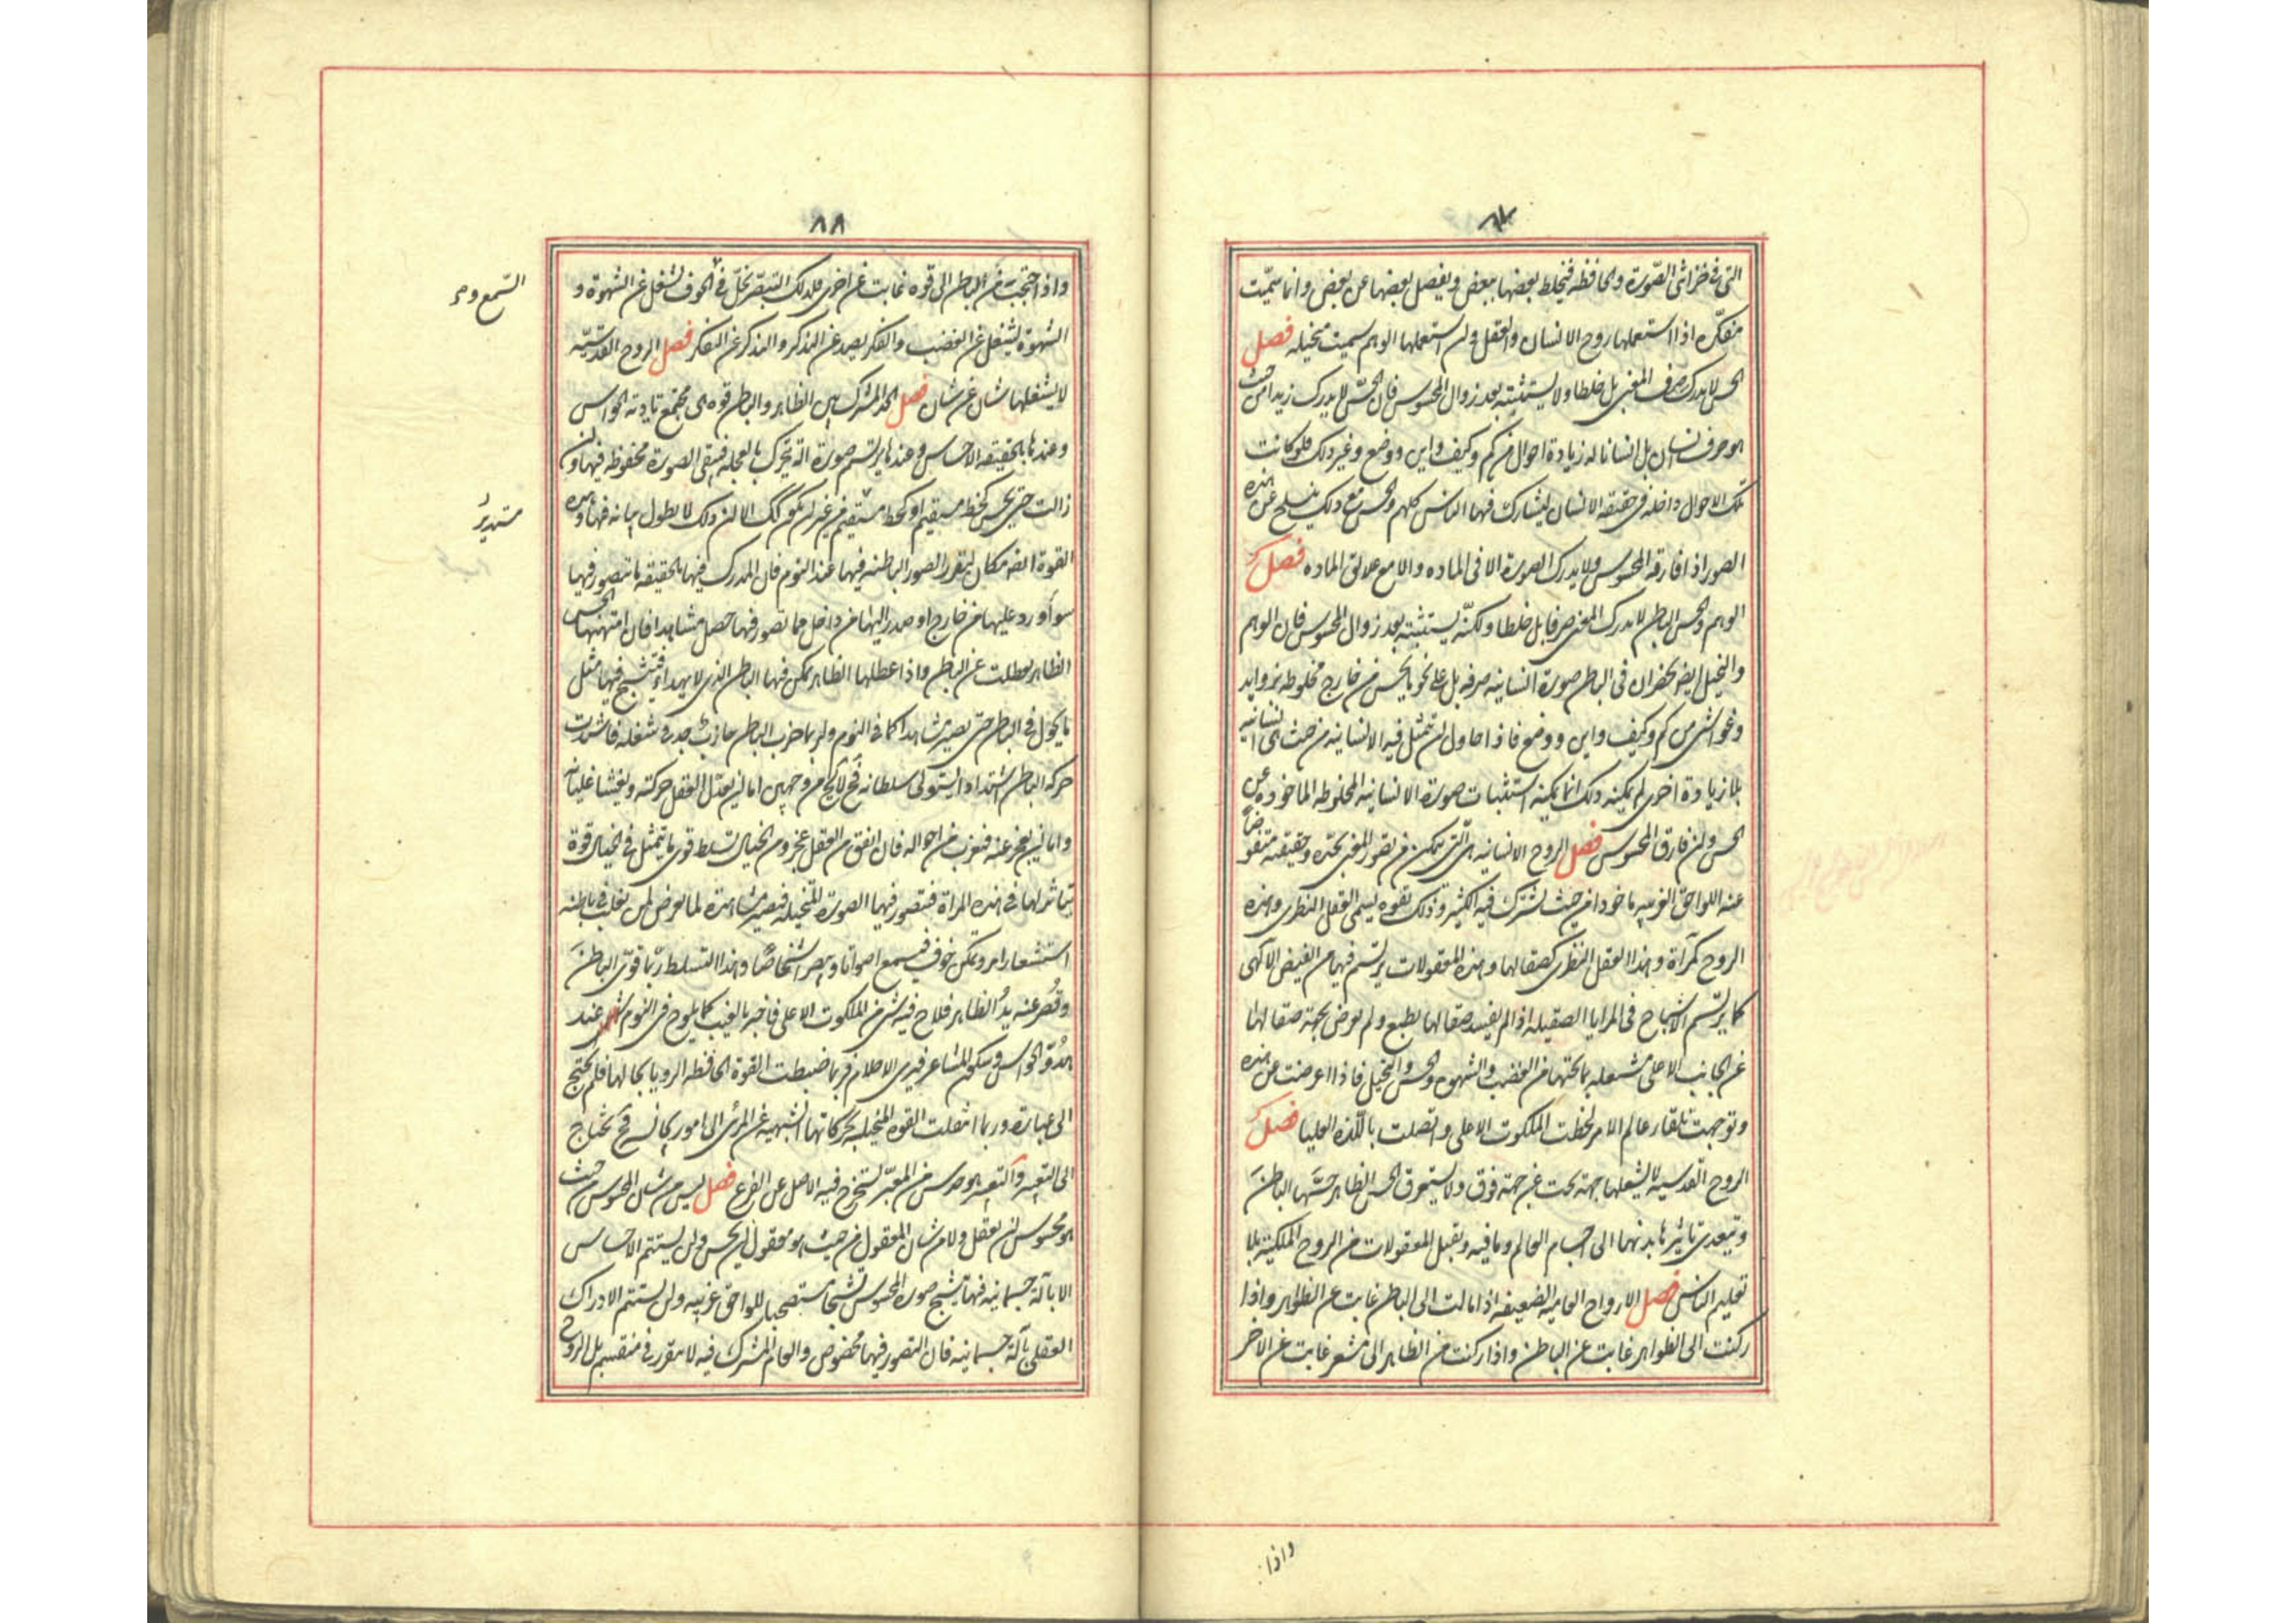 ٨٧
التی فی خزانتی الصّورة والحافظه فیخلط بعضها ببعض ویفصل بعضها عن بعض وانما سمّیت
مفکّره اذا استعملها روح الانسان والعقل ولن استعملها الوهم سمیت متخیله فصل
الحس لا یدرک صرف المعنی بل خلطا ولا یستثبته بعد زوال المحسوس فان الحسّ لا یدرک زیدا من حیث
هو صرف انسان بل انسانا له زیادة احوال من کم وکیف واین ووضع وغیر ذلک فلو کانت
تلک الاحوال داخله فی حقیقه الانسان لیشارک فیها الناس کلهم والحس مع ذلک ینسلخ عن هذه
الصور اذا فارقه المحسوس ولا یدرک الصورة الا فی الماده والا مع علائق الماده فصل
الوهم والحس الباطن لا یدرک المعنی صرفا بل خلطا ولکنّه یستثبته بعد زوال المحسوس فان الوهم
والتخیل ایضا یحضران فی الباطن صورة انسانیه صرفه بل علی نحو ما یحس من خارج مخلوطه بزواید
وغواشی من کم وکیف واین ووضع فاذا حاول لن تتمثل فیه الانسانیه من حیث هی انسانیه
بلا زیادة اخری لم یمکنه ذلک انما یمکنه استثبات صورة الانسانیه المخلوطه الماخوذه عن
الحس ولن فارق المحسوس فصل الروح الانسانیه هی الّتی تتمکن من تصور المعنی بحدّه وحقیقته منفوضاً
عنه اللواحق الغریبه ماخوذا من حیث یشترک فیه الکثیر وذلک بقوه یسمی العقل النظری وهذه
الروح کمرآة وهذا العقل النظری کصقالها وهذه المعقولات یرتسم فیها من الفیض الآلهی
کما یرتسم الاشباح فی المرایا الصقیله اذا لم یفسد صقالها بطبع ولم یعرض بجهة صقالها
عن الجانب الاعلی مشغله بما تحتها من الغضب والشهوه والحس والتخیل فاذا اعرضت عن هذه
وتوجهت تلقاء عالم الامر لحظت الملکوت الاعلی واتصلت باللّذه العلیا فصل
الروح القدسیه لا یشغلها جهة تحت عن جهة فوق ولا یستغرق الحس الظاهر حسّها الباطن
ویتعدی تاثیرها بدنها الی اجسام العالم وما فیه وتقبل المعقولات من الروح الملکیة بلا
تعلیم الناس فصل الارواح العامیه الضعیفه اذا مالت الی الباطن غابت عن الظاهر واذا
رکنت الی الظواهر غابت عن الباطن واذا رکنت من الظاهر الی مشعر غابت عن الاخر
واذا
٨٨
واذا اجتحبت من الباطن الی قوه غابت عن اخری فلذلک البصر یختلّ فی الخوف یشغل عن الشهوة و
السّمع و
الشهوة یشغل عن الغضب والفکر یصد عن التذکر والتذکر عن التفکر فصل الروح القدسیّه
لا یشغلها شان عن شان فصل الحد المشترک بین الظاهر والباطن قوه هی مجتمع تادیة الحواس
وعندها بالحقیقه الاحساس وعندها یرتسم صورة آلة تتحرک بالعجله فتبقی الصورة محفوظه فیها ولن
زالت حتی یحس کخط مستقیم او کخط مستقیم من غیر لن یکون کذلک الا لن ذلک لا یطول ثباته فیها وهذه
مستدیرٌ
القوة ایضا مکان لتقرر الصور الباطنه فیها عند النوم فان المدرک فیها بالحقیقه ما یتصور فیها
سواء ورد علیها من خارج او صدر الیها من داخل فما تصور فیها حصل مشاهدا فان امتهنها الحس
الظاهر تعطلت عن الباطن واذا عطلها الظاهر تمکن فیها الباطن الذی لا یهدأ فتتشبح فیها مثل
ما یحول فی الباطن حتی یصیر مشاهدا کما فی النوم ولربما جذب الباطن جاذب جد فی شغله فاشتدت
حرکه الباطن اشتدادا یستولی سلطانه فح لا یخ من وجهین اما لن یعدّل العقل حرکته ویفثا غلیانه
واما لن یعجز عنه فیعزب من احواله فان اتفق من العقل عجز ومن الخیال تسلط قوی ما یتمثل فی الخیال قوة
تباشرها فی هذه المرآة فتتصور فیها الصورة المتخیله فتصیر مشاهدة لما یعرض لمن یغلب فی باطنه
استشعار امر وتمکن خوف فیسمع اصواتا ویبصر اشخاصًا وهذا التسلط ربّما قوی الباطن
وقصُر عنه یدُ الظاهر فلاح فیه شئ من الملکوت الاعلی فاخبر بالغیب کما یلوح فی النوم عند
هدُوّ الحواس وسکون المشاعر فیری الاحلام فربما ضبطت القوة الحافظه الرویا بحالها فلم یحتج
الی عباره وربما انتقلت القوه المتخیله بحرکاتها الشبیهة عن المرئی الی امور تجانسه فح تحتاج
الی التعبیر والتعبیر هو حدس من المعبّر لیستخرج فیه الاصل عن الفرع فصل لیس من شان المحسوس من حیث
هو محسوس لن یعقل ولا من شان المعقول من حیث هو معقول لن یحس ولن یستتم الاحساس
الا بآلة جسمانیه فیها یتشبح صورة المحسوس تشبحا مستصحبا للواحق غریبه ولن یستتم الادراک
العقلی بآلة جسمانیه فان المتصور فیها مخصوص والعام المشترک فیه لا یتقرر فی منقسم بل الروح